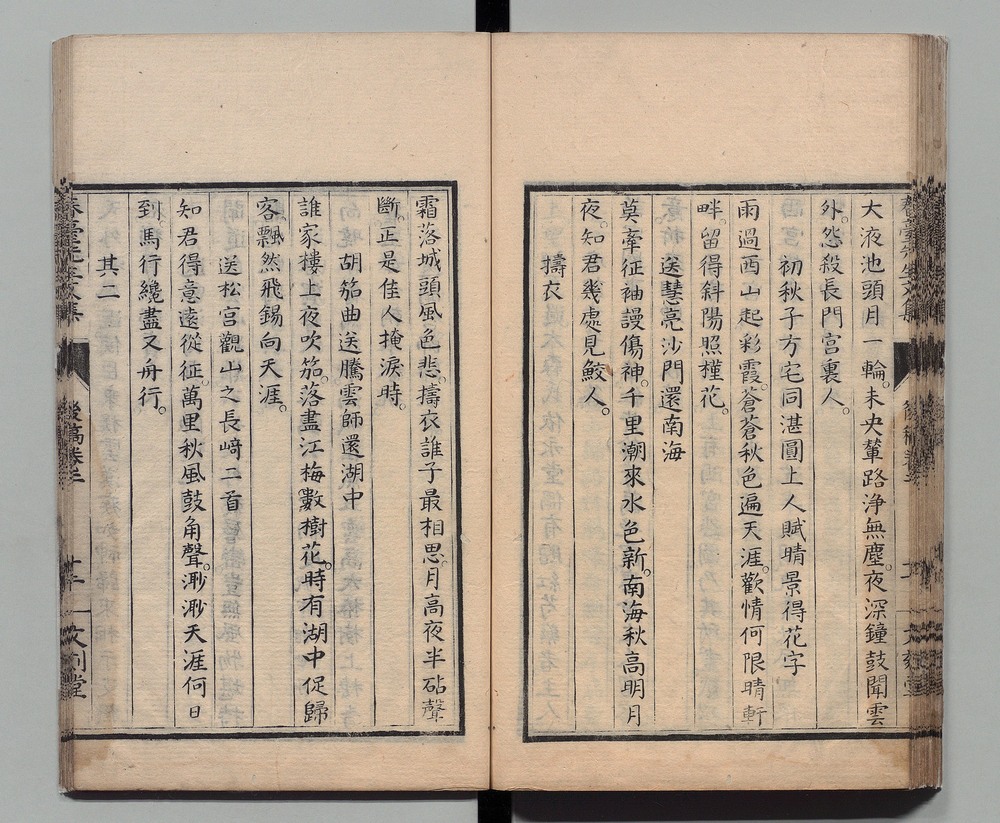 大液池頭月一輪。未央輦路浄無塵。夜深鐘鼓聞雲
外。怨殺長門宮裏人。
初秋子方宅同湛圓上人賦晴景得花字
雨過西山起彩霞。蒼蒼秋色遍天涯。歡情何限晴軒
畔。留得斜陽照槿花。
送慧亮沙門還南海
莫牽征袖謾傷神。千里潮來水色新。南海秋高明月
夜。知君幾處見鮫人。
擣衣
霜落城頭風色悲。擣衣誰子最相思。月高夜半砧聲
斷。正是佳人掩淚時。
聽胡笳曲送騰雲師還湖中
誰家樓上夜吹笳。落盡江梅數樹花。時有湖中促歸
客。飄然飛錫向天涯。
送松宮觀山之長﨑二首
知君得意遠從征。萬里秋風鼓角聲。渺渺天涯何日
到。馬行纔盡又舟行。
其二
後稿卷